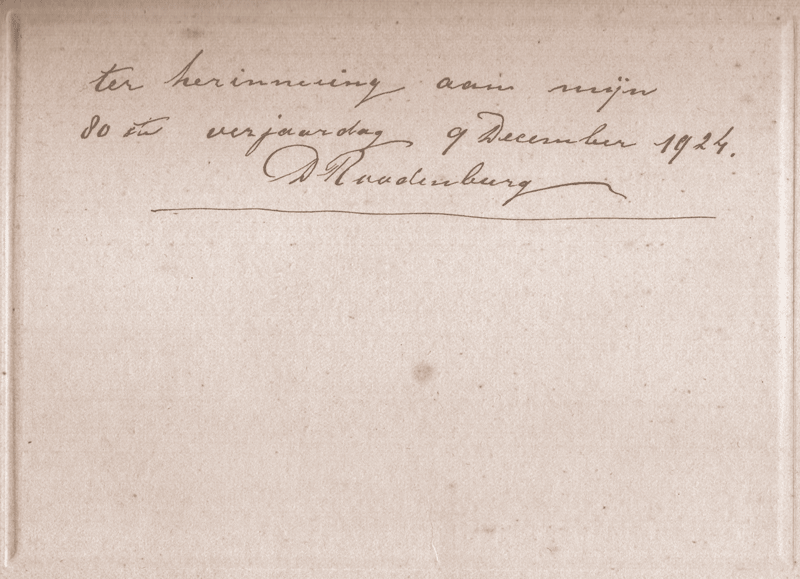 ter herinnering aan mijn
80 ste verjaardag 9 December 1924.
D Roodenburg